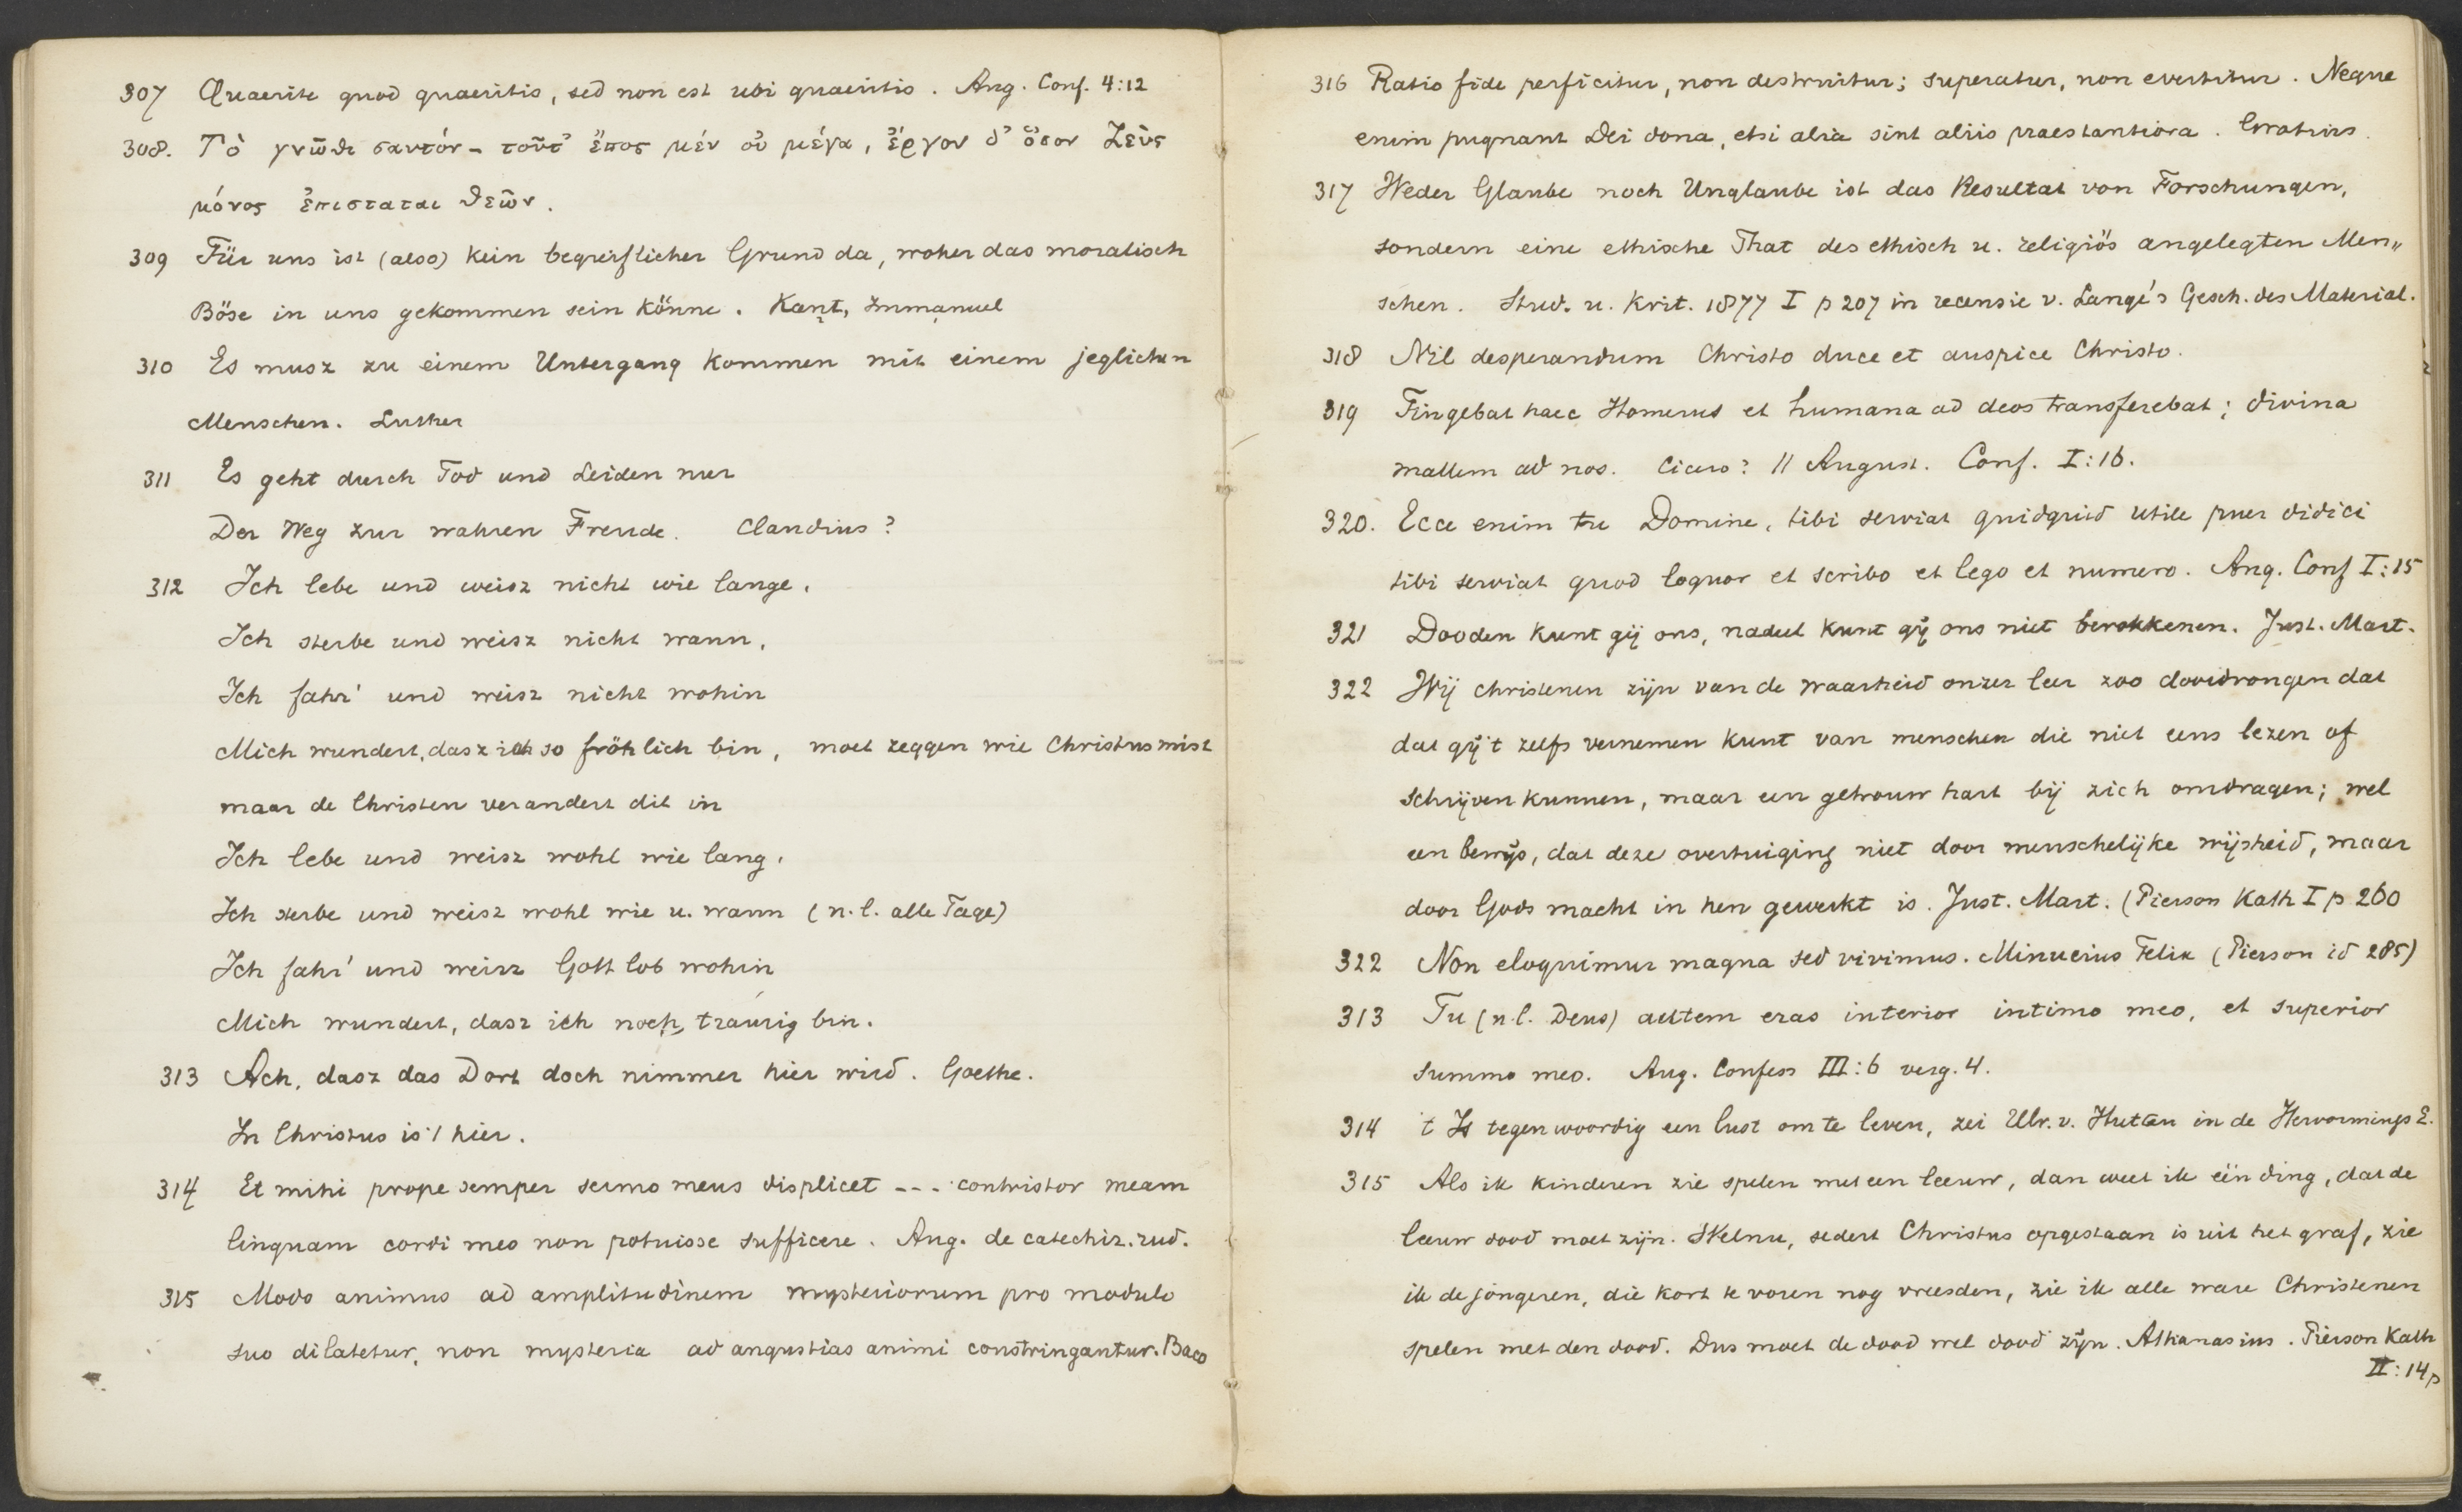 307 Quaerite quod quaeritis, sed non est ubi quaeritis. Aug. Conf. 4:12
308. Τὸ γνῶθι σαυτόν - τοῦτ᾽ ἔπος μέν οὐ μέγα, ἔργον δ᾽ ὅσον Ζεῦς
μόνος ἐπισταται θεῶν.
309 Für uns ist (also) kein begreiflicher Grund da, woher das moralisch
Böse in uns gekommen sein könne. Kant, Immanuel
310 Es musz zu einem Untergang kommen mit einem jeglichen
Menschen. Luther
311 Es geht durch Tod und Leiden nur
Der Weg zur wahren Freude. Claudius?
312 Ich lebe und weisz nicht wie lange,
Ich sterbe und weisz nicht wann,
Ich fahr' und weisz nicht wohin
Mich wundert, dasz ich so fröhlich bin, moet zeggen wie Christus mist
maar de Christen verandert dit in
Ich lebe und weisz wohl wie lang,
Ich sterbe und weisz wohl wie u. wann (n.l. alle Tage)
Ich fahr' und weisz Gott lob wohin
Mich wundert, dasz ich noch traurig bin.
313 Ach, dasz das Dort doch nimmer hier wird. Goethe.
In Christus is 't hier.
314 Et mihi prope semper sermo meus displicet --- contristor meam
linguam cordi meo non potuisse sufficere. Aug. de catechiz. rud.
315 Modo animus ad amplitudinem mysteriorum pro modulo
suo dilatetur, non mysteria ad angustias animi constringantur. Baco
316 Ratio fide perficitur, non destruitur; superatur, non evertitur. Neque
enim pugnant Dei dona, etsi alia sint aliis praestantiora. Grotius.
317 Weder Glaube noch Unglaube ist das Resultat von Forschungen,
sondern eine ethische That des ethisch u. religiös angelegten Men„
schen. Stud. u. Krit. 1877 I p 207 in recensie v. Lange's Gesch. des Material.
318 Nil desperandum Christo duce et auspice Christo.
319 Fingebat haec Homerus et humana ad deos transferebat; divina
mallem ad nos. Cicero? // August. Conf. I:16.
320. Ecce enim tu Domine, tibi serviat quidquid utile puer didici
tibi serviat quod loquor et scribo et lego et numero. Aug. Conf I:15
321 Dooden kunt gij ons, nadeel kunt gij ons niet berokkenen. Just. Mart.
322 Wij christenen zijn van de waarheid onzer leer zoo doordrongen dat
dat gij 't zelfs vernemen kunt van menschen die niet eens lezen of
schrijven kunnen, maar een getrouw hart bij zich omdragen; wel
een bewijs, dat deze overtuiging niet door menschelijke wijsheid, maar
door Gods macht in hen gewerkt is. Just. Mart. (Pierson Kath I p 260
322 Non eloquimur magna sed vivimus. Minucius Felix (Pierson id 285)
313 Tu (n.l. Deus) autem eras interior intimo meo, et superior
summo meo. Aug. Confess III:6 verg. 4.
314 't Is tegenwoordig een lust om te leven, zei Ulr. v. Hutten in de Hervormings E.
315 Als ik kinderen zie spelen met een leeuw, dan weet ik één ding, dat de
leeuw dood moet zijn. Welnu, sedert Christus opgestaan is uit het graf, zie
ik de jongeren, die kort te voren nog vreesden, zie ik alle ware Christenen
spelen met den dood. Dus moet de dood wel dood zijn. Athanasius. Pierson Kath
II:14 p